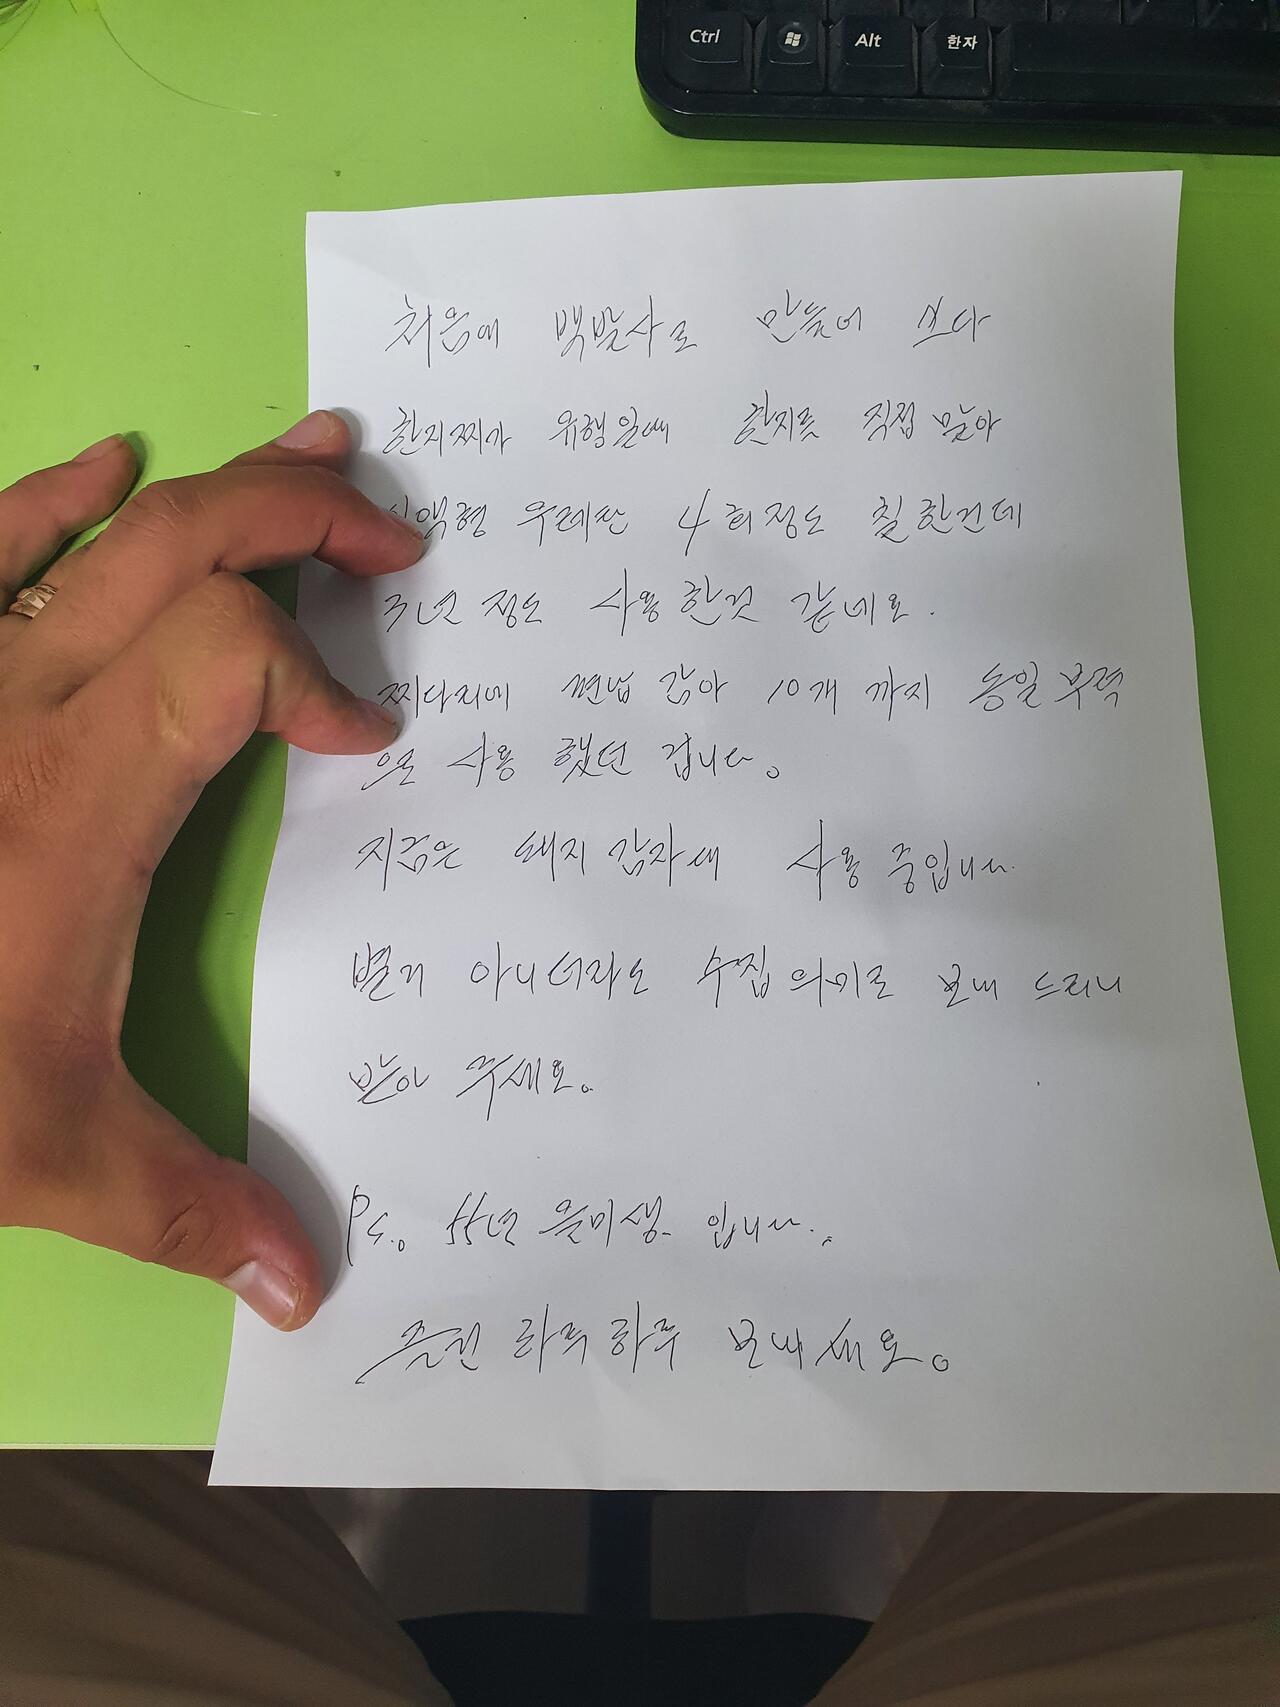 Ctrl Alt 한자
처음에 백발사로 만들어 쓰다
한지찌가 유행일때 한지를 직접 말아
일액형 우레탄 4회정도 칠한건데
3년 정도 사용한것 같네요.
찌다리에 편납 감아 10개 까지 동일부력
으로 사용 했던 겁니다.
지금은 돼지감자대 사용 중입니다.
별거 아니더라도 수집 의미로 보내 드리니
받아 주세요.
Ps. 55년 을미생 입니다.
즐건 하루하루 보내세요.